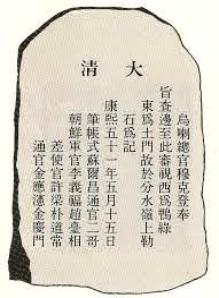 大清
烏喇總官穆克登奉
旨查邊至此審視西爲鴨綠
東爲土門故於分水嶺上勒
石爲記
康熙五十一年五月十五日
筆帳式蘇爾昌通官二哥
朝鮮軍官李義趙臺相
差使官許梁朴道常
通官金應金慶門